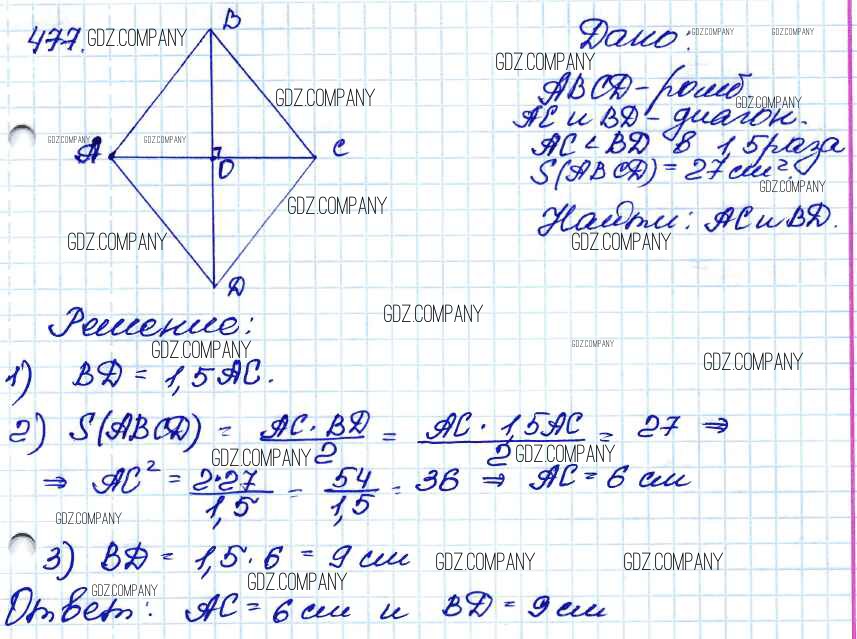 477. GDZ.COMPANY
B
Дано: GDZ.COMPANY GDZ.COMPANY
GDZ.COMPANY
ABCD - ромб
GDZ.COMPANY
GDZ.COMPANY
AC и BD - диагон.
GDZ.COMPANY GDZ.COMPANY
A
O
C
AC < BD в 1,5 раза
S(ABCD) = 27 см².
GDZ.COMPANY
GDZ.COMPANY
Найти: AC и BD.
GDZ.COMPANY
GDZ.COMPANY
D
Решение:
GDZ.COMPANY
GDZ.COMPANY
GDZ.COMPANY
GDZ.COMPANY
1) BD = 1,5 AC.
2) S(ABCD) = AC · BD / 2 = AC · 1,5AC / 2 = 27 ⇒
GDZ.COMPANY GDZ.COMPANY
⇒ AC² = 2·27 / 1,5 = 54 / 1,5 = 36 ⇒ AC = 6 см
GDZ.COMPANY
3) BD = 1,5 · 6 = 9 см
GDZ.COMPANY GDZ.COMPANY
GDZ.COMPANY GDZ.COMPANY
Ответ: AC = 6 см и BD = 9 см